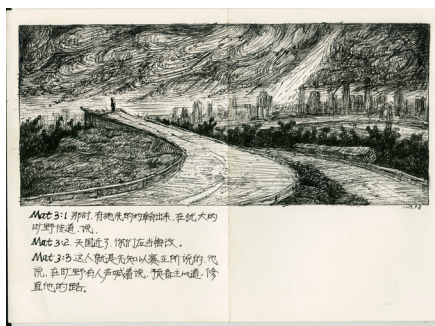 Mat 3:1 那时,有施洗的约翰出来,在犹太的
旷野传道,说
Mat 3:2 天国近了,你们应当悔改。
Mat 3:3 这人就是先知以赛亚所说的,他
说,在旷野有人声喊着说,预备主的道,修
直他的路。